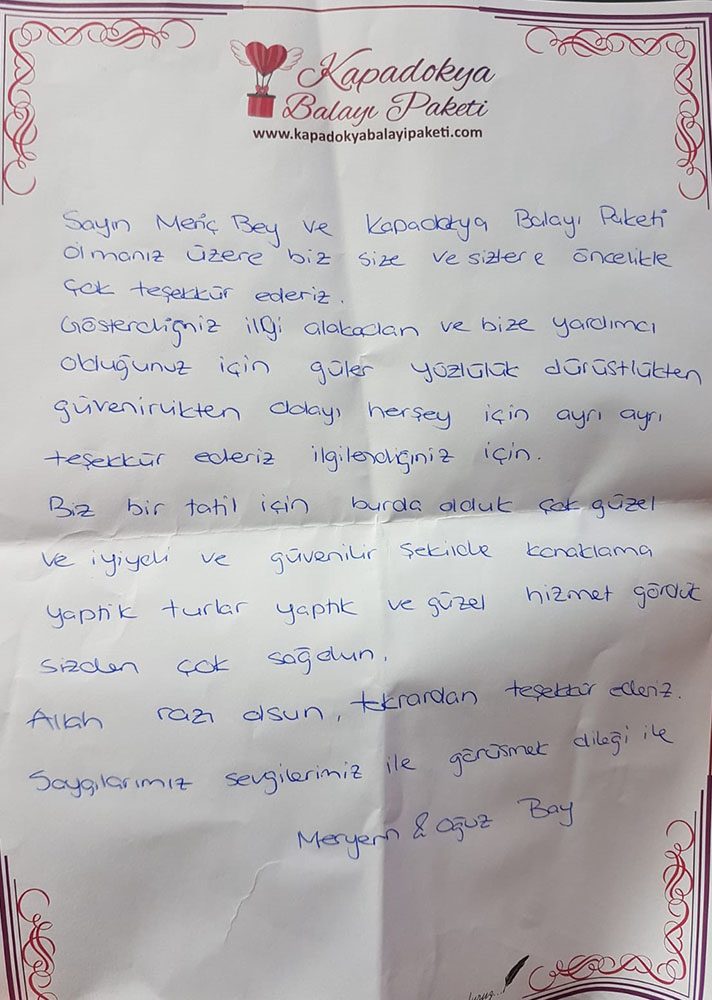 Kapadokya
Balayı Paketi
www.kapadokyabalayipaketi.com
Sayın Meriç Bey ve Kapadokya Balayı Paketi
olmanız üzere biz size ve sizlere öncelikle
çok teşekkür ederiz.
Gösterdiğiniz ilgi alakadan ve bize yardımcı
olduğunuz için güler yüzlülük dürüstlükten
güvenirlikten dolayı herşey için ayrı ayrı
teşekkür ederiz ilgilendiğiniz için.
Biz bir tatil için burda olduk çok güzel
ve iyiydi ve güvenilir şekilde konaklama
yaptık turlar yaptık ve güzel hizmet gördük
sizden çok sağolun.
Allah razı olsun, tekrardan teşekkür ederiz.
Saygılarımız sevgilerimiz ile görüşmek dileği ile
Meryem & Oğuz Bay